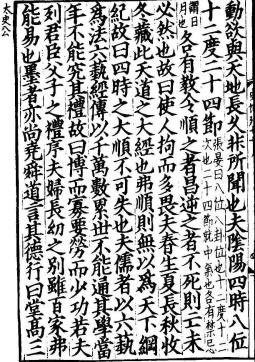 動欲與天地長久非所聞也夫陰陽四時八位
十二度二十四節張晏曰八位八卦位也十二度十二次也二十四節就中氣也各有禁忌
謂日月也各有敎令順之者昌逆之者不死則亡未
必然也故曰使人拘而多畏夫春生夏長秋收
冬藏此天道之大經也弗順則無以爲天下綱
紀故曰四時之大順不可失也夫儒者以六藝
爲法六藝經傳以千萬數累世不能通其學當
年不能究其禮故曰博而寡要勞而少功若夫
列君臣父子之禮序夫婦長幼之別雖百家弗
能易也墨者亦尚堯舜道言其德行曰堂高三
太史公